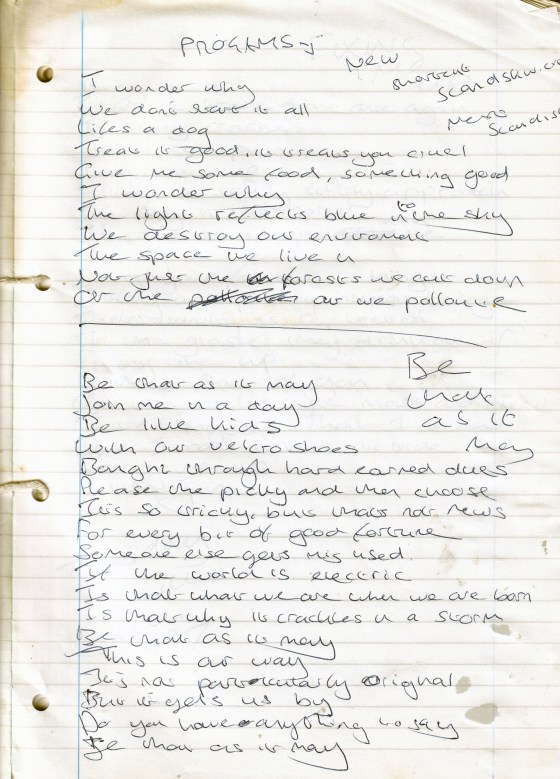 PROGRAMS
New
shortcut
Scandskw.
Menu
Scandis
I wonder why
We dont start it all
Likes a dog
Treat it good, it treats you cruel
Give me some food, something good
I wonder why
The light reflects blue in to the sky
We destroy our enviroment
The space we live in
Not just the forests we cut down
Or the air we polloute
Be that as it may
Be that as it may
Join me in a day
Be like kids
With our velcro shoes
Bought through hard earned dues
Please the picky and then choose
It is so tricky, but thats not news
For every bit of good fortune
Someone else gets mis used.
If the world is electric
Is that what we are when we are born
Is that why it crackles in a storm
Be that as it may
This is our way
It's not particularly original
But it gets us by
Do you have anything to say
Be that as it may